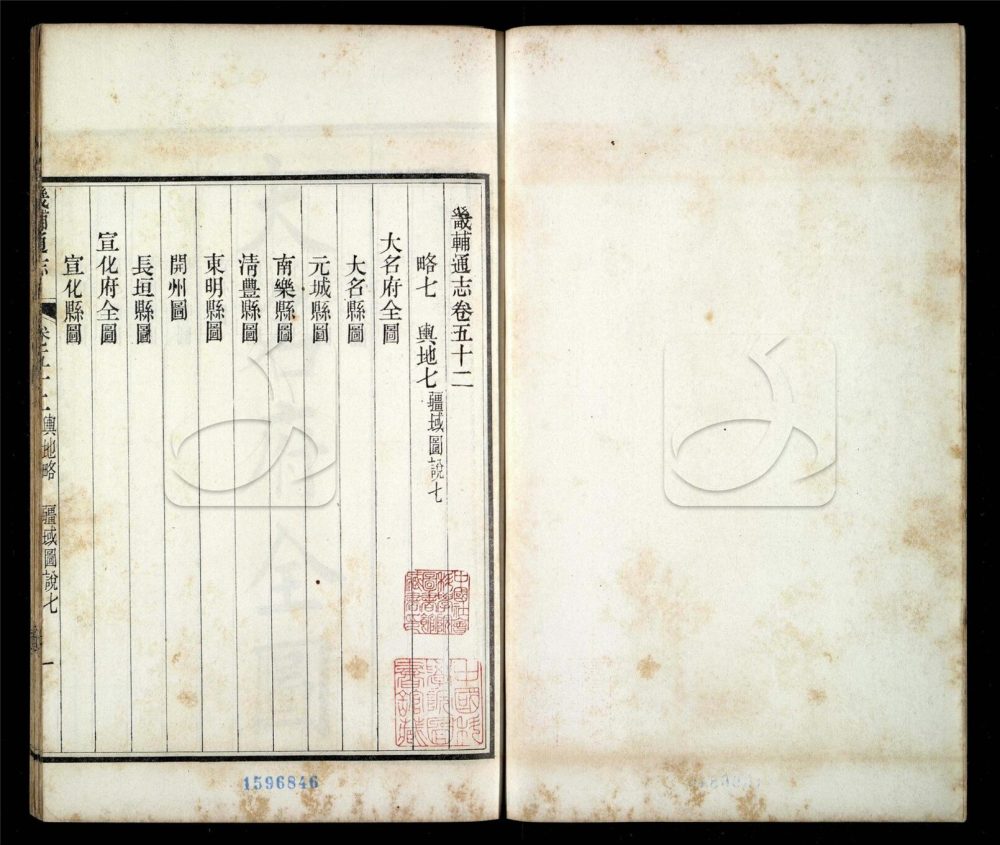 畿輔通志卷五十二
略七 輿地七 疆域圖說七
大名府全圖
大名縣圖
元城縣圖
南樂縣圖
清豐縣圖
東明縣圖
開州圖
長垣縣圖
宣化府全圖
宣化縣圖
畿輔通志 卷五十二 輿地略 疆域圖說七 一
中國科學院圖書館藏
1596846